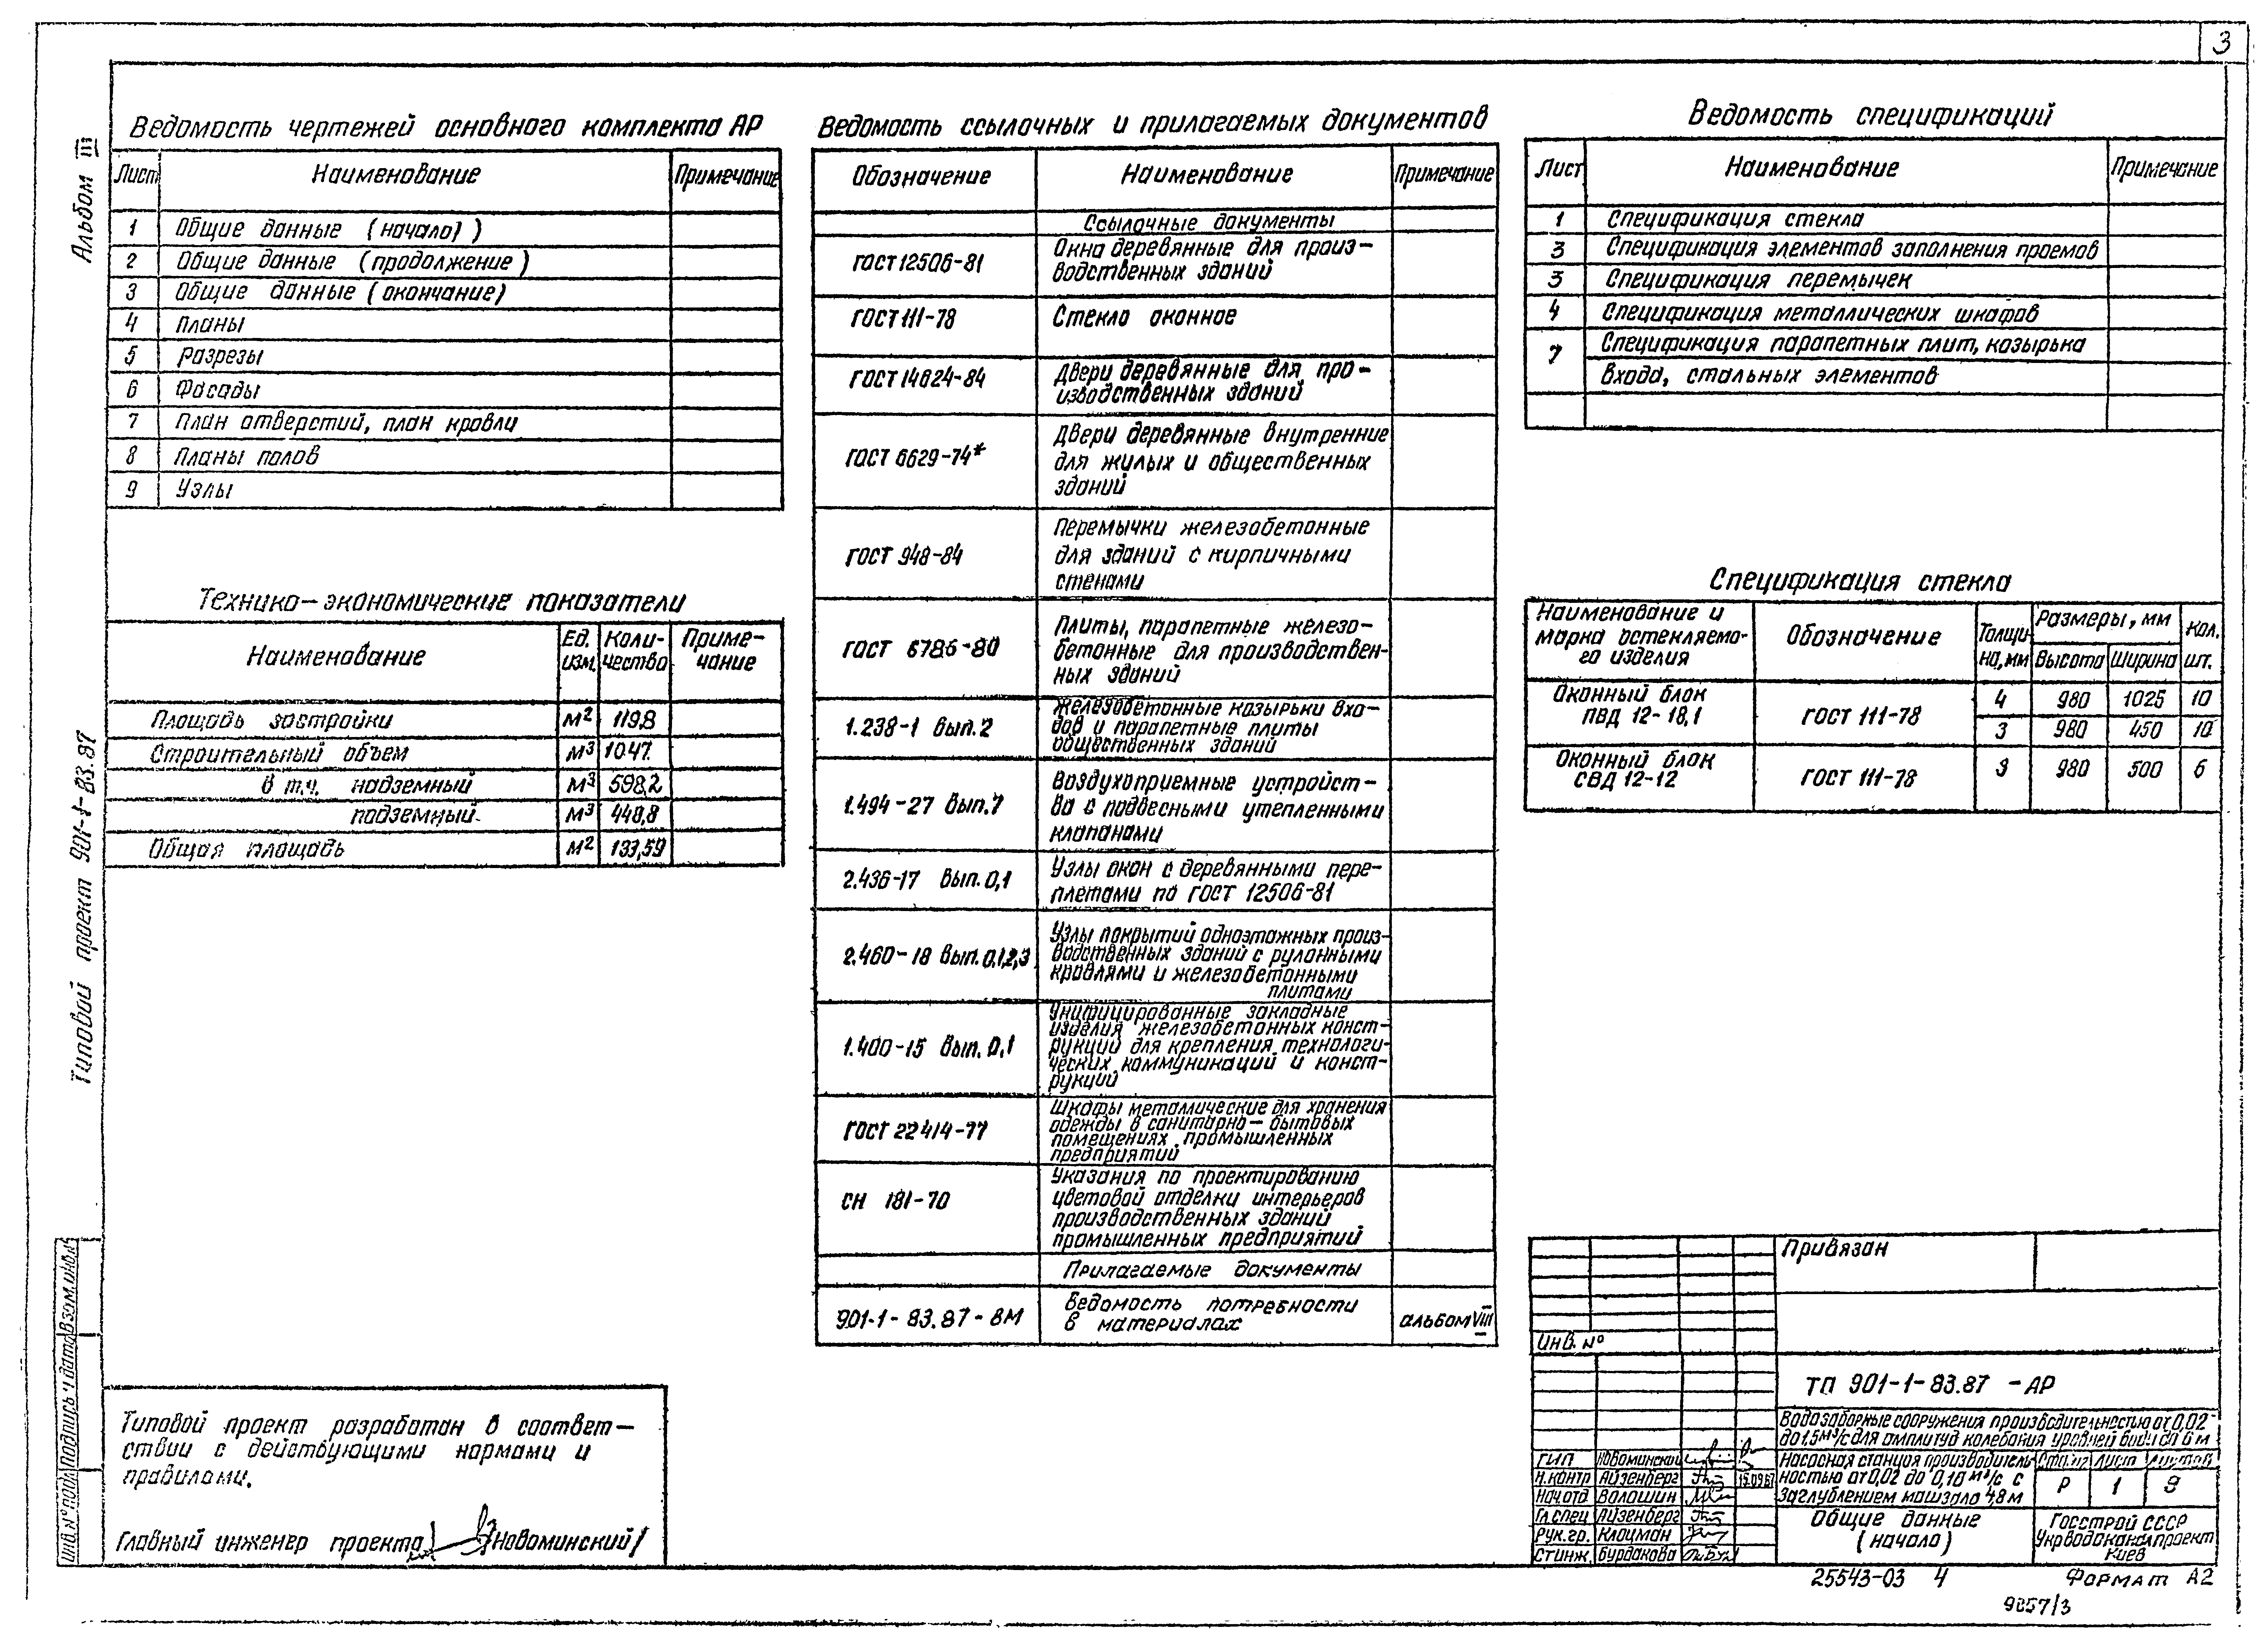 3
Альбом III
Типовой проект 901-1-83.87
Ведомость чертежей основного комплекта АР
Лист Наименование Примечание
1 Общие данные (начало)
2 Общие данные (продолжение)
3 Общие данные (окончание)
4 Планы
5 Разрезы
6 Фасады
7 План отверстий, план кровли
8 Планы полов
9 Узлы
Технико-экономические показатели
Наименование Ед. изм. Коли-чество Приме-чание
Площадь застройки м2 119.8
Строительный объем м3 1047.
в т.ч. надземный м3 598,2
подземный м3 448,8
Общая площадь м2 133,59
Типовой проект разработан в соответ-
ствии с действующими нормами и
правилами.
Главный инженер проекта /Новоминский/
Ведомость ссылочных и прилагаемых документов
Обозначение Наименование Примечание
Ссылочные документы
ГОСТ 12506-81 Окна деревянные для произ-
водственных зданий
ГОСТ 111-78 Стекло оконное
ГОСТ 14624-84 Двери деревянные для про-
изводственных зданий
ГОСТ 6629-74* Двери деревянные внутренние
для жилых и общественных
зданий
ГОСТ 948-84 Перемычки железобетонные
для зданий с кирпичными
стенами
ГОСТ 6786-80 Плиты, парапетные железо-
бетонные для производствен-
ных зданий
1.238-1 вып.2 Железобетонные козырьки вхо-
дов и парапетные плиты
общественных зданий
1.494-27 вып.7 Воздухоприемные устройст-
ва с подвесными утепленными
клапанами
2.436-17 вып.0,1 Узлы окон с деревянными пере-
плетами по ГОСТ 12506-81
2.460-18 вып.0,1,2,3 Узлы покрытий одноэтажных произ-
водственных зданий с рулонными
кровлями и железобетонными
плитами
1.400-15 вып.0,1 Унифицированные закладные
изделия железобетонных конст-
рукций для крепления технологи-
ческих коммуникаций и конст-
рукций
ГОСТ 22414-77 Шкафы металлические для хранения
одежды в санитарно-бытовых
помещениях промышленных
предприятий
СН 181-70 Указания по проектированию
цветовой отделки интерьеров
производственных зданий
промышленных предприятий
Прилагаемые документы
901-1-83.87-ВМ Ведомость потребности
в материалах альбом VIII
Ведомость спецификаций
Лист Наименование Примечание
1 Спецификация стекла
3 Спецификация элементов заполнения проемов
3 Спецификация перемычек
4 Спецификация металлических шкафов
7 Спецификация парапетных плит, козырька
входа, стальных элементов
Спецификация стекла
Наименование и марка остекляемо-го изделия Обозначение Толщи-на, мм Размеры, мм Высота Ширина Кол. шт.
Оконный блок ПВД 12-18,1 ГОСТ 111-78 4 980 1025 10
3 980 450 10
Оконный блок СВД 12-12 ГОСТ 111-78 3 980 500 6
Привязан
Инв. №
ТП 901-1-83.87 -АР
Водозаборные сооружения производительностью от 0,02
до 1,5 м3/с для амплитуд колебания уровней воды до 6 м
Насосная станция производитель-
ностью от 0,02 до 0,18 м3/с с
заглублением машзала 4,8 м
Стадия Лист Листов
Р 1 9
ГИП Новоминский
Н.контр Айзенберг
Нач.отд Волошин
Гл.спец Айзенберг
Рук.гр. Клоцман
Ст.инж. Бурдакова
Общие данные
(начало)
Госстрой СССР
Укрводоканалпроект
Киев
Инв.№ подл. Подпись и дата Взам.инв.№
25543-03 4 Формат А2
9857/3